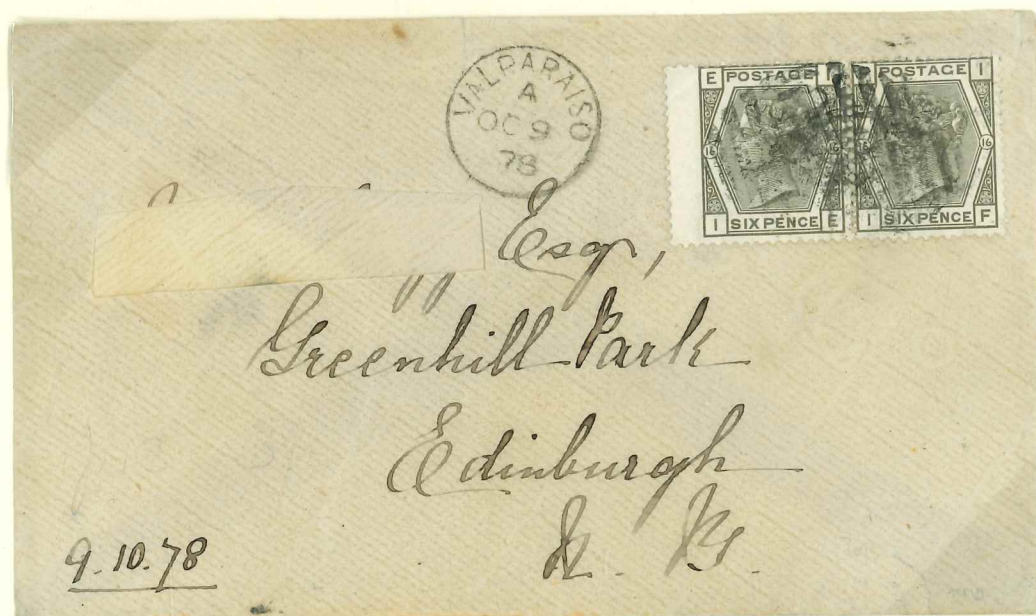 VALPARAISO
A
OC 9
78
E POSTAGE I
16 16
I SIX PENCE E
POSTAGE I
16
I SIX PENCE F
Esqr,
Greenhill Park
Edinburgh
N. B.
9.10.78